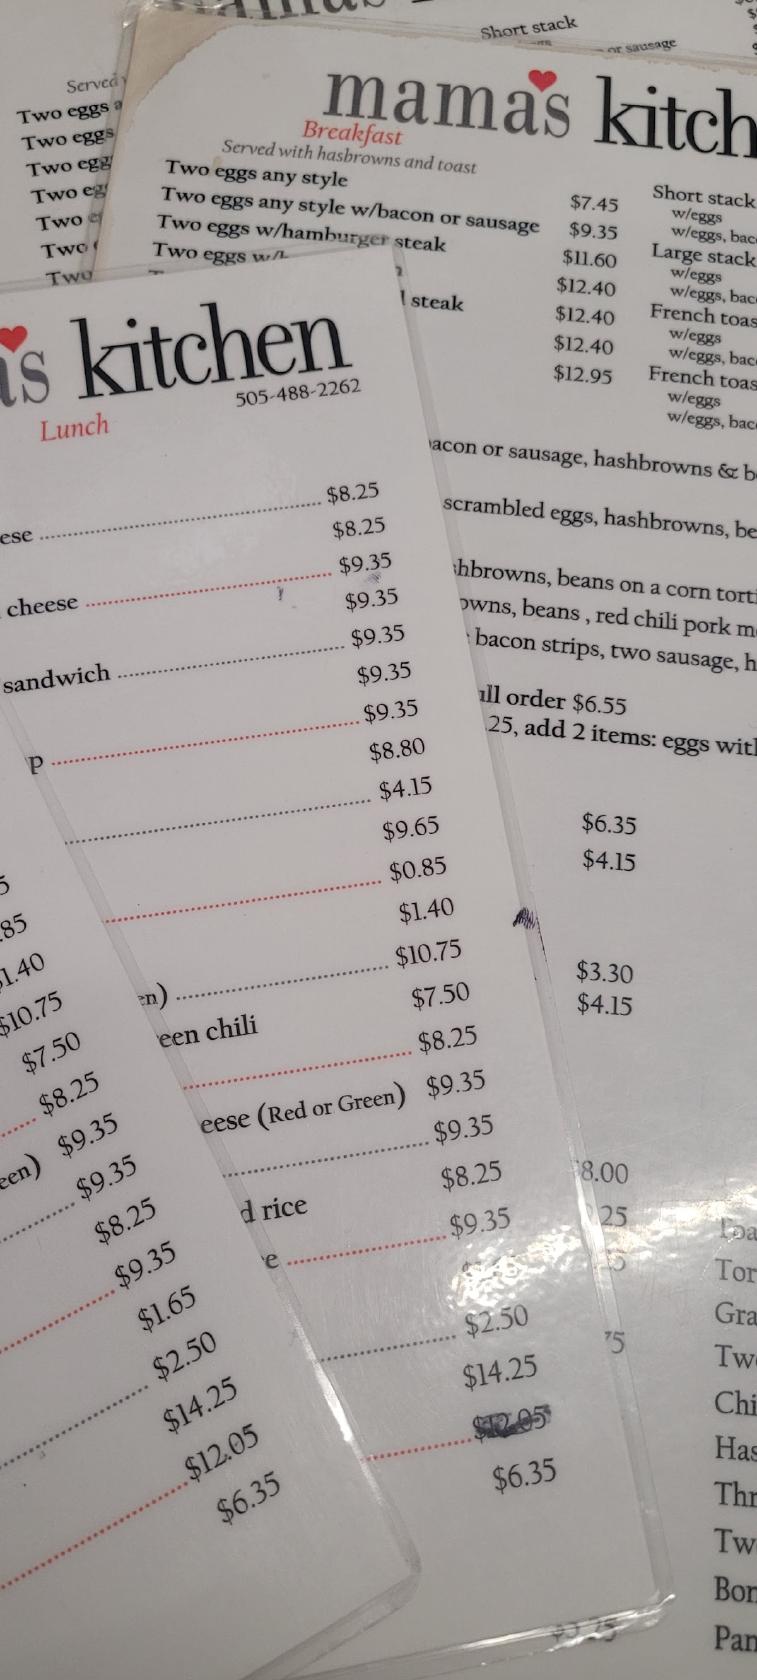 Short stack
or sausage
Served
Two eggs
Two eggs
Two
Two
Two
Two
Two
mamas kitch
Breakfast
Served with hasbrowns and toast
Two eggs any style $7.45
Two eggs any style w/bacon or sausage $9.35
Two eggs w/hamburger steak $11.60
Two eggs $12.40
steak $12.40
$12.40
$12.95
Short stack
w/eggs
w/eggs, bac
Large stack
w/eggs
w/eggs, bac
French toas
w/eggs
w/eggs, bac
French toas
w/eggs
w/eggs, bac
acon or sausage, hashbrowns & b
scrambled eggs, hashbrowns, be
hbrowns, beans on a corn torti
owns, beans , red chili pork m
bacon strips, two sausage, h
ull order $6.55
.25, add 2 items: eggs with
$6.35
$4.15
$3.30
$4.15
8.00
25
5
75
$3.25
Toa
Tor
Gra
Tw
Chi
Has
Thr
Tw
Bon
Pan
as kitchen
505-488-2262
Lunch
ese $8.25
$8.25
cheese $9.35
$9.35
sandwich $9.35
$9.35
p $9.35
$8.80
$4.15
$9.65
$0.85
$1.40
en) $10.75
een chili $7.50
$8.25
eese (Red or Green) $9.35
$9.35
d rice $8.25
e $9.35
$2.50
$14.25
$12.05
$6.35
5
.85
1.40
$10.75
$7.50
$8.25
een) $9.35
$9.35
$8.25
$9.35
$1.65
$2.50
$14.25
$12.05
$6.35